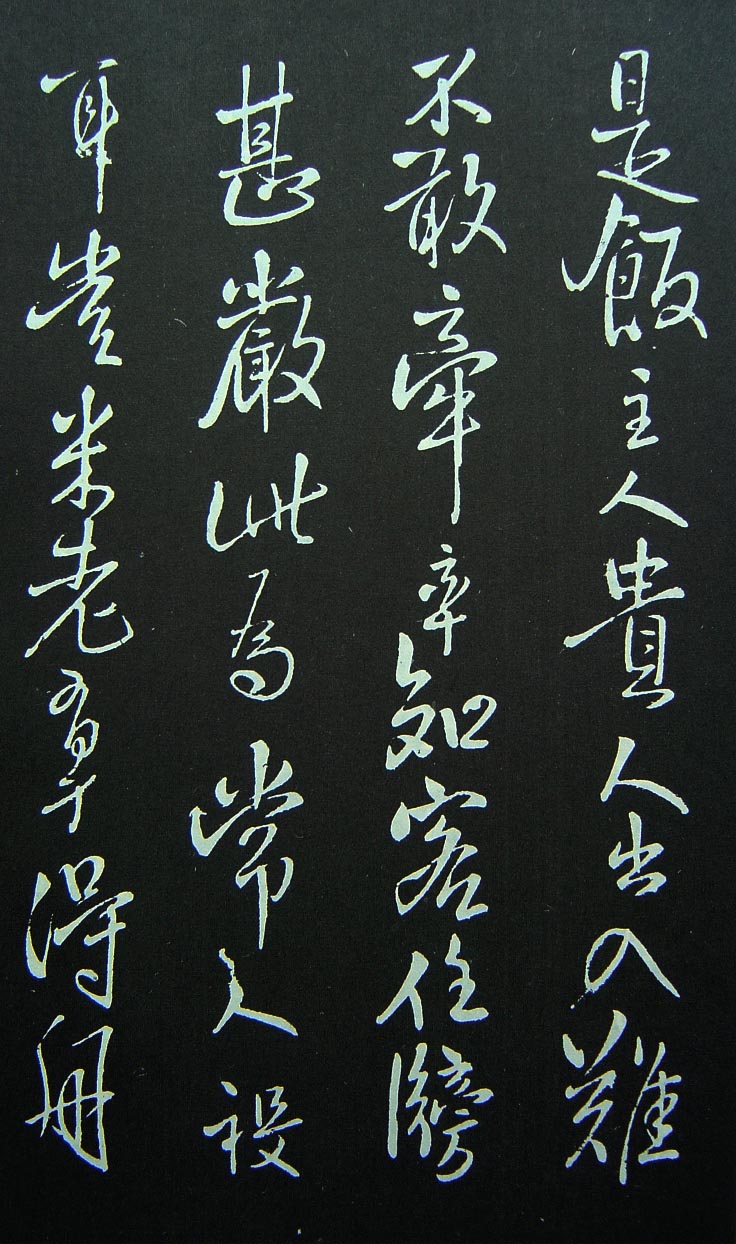 是飯主人貴人出入難
不敢牽率知客位牓
甚嚴此為常人設
耳豈米老得冊